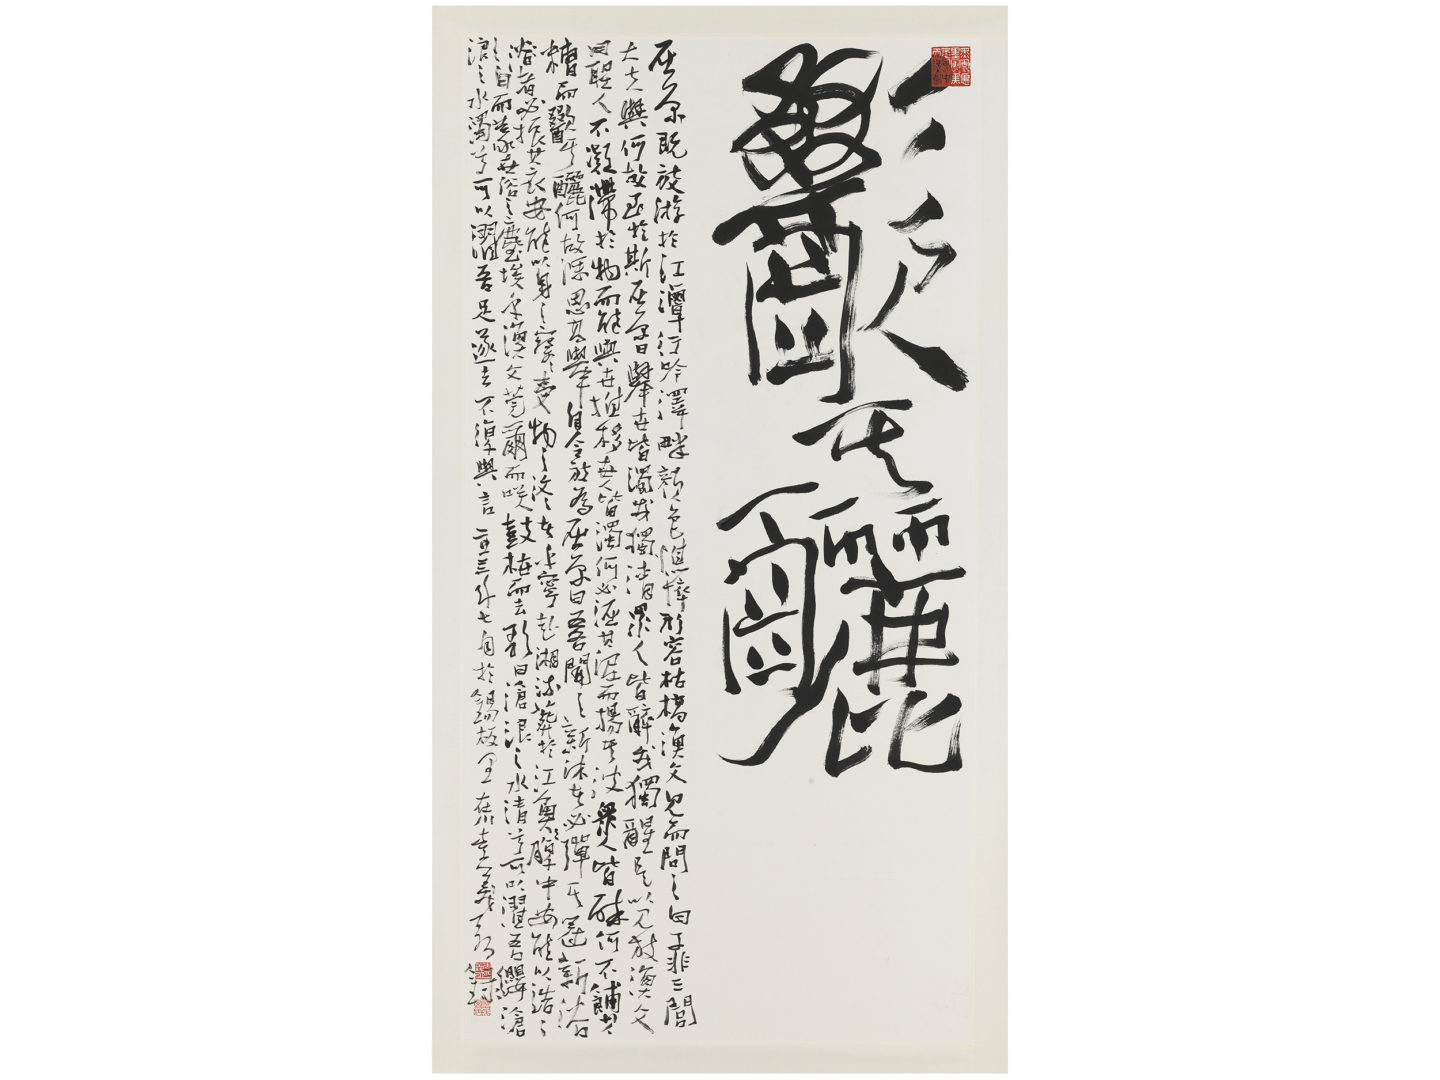 歠其釃
屈原既放游於江潭行吟澤畔顏色憔悴形容枯槁漁父見而問之曰子非三閭
大夫與何故至於斯屈原曰舉世皆濁我獨清眾人皆醉我獨醒是以見放漁父
曰聖人不凝滯於物而能與世推移世人皆濁何必淈其泥而揚其波眾人皆醉何不餔其
糟而歠其釃何故深思高舉自令放為屈原曰吾聞之新沐者必彈其冠新浴
者必振其衣安能以身之察察受物之汶汶者乎寧赴湘流葬於江魚腹中安能以浩浩之
白而蒙世俗之塵埃乎漁父莞爾而笑鼓枻而去歌曰滄浪之水清兮可以濯吾纓滄
浪之水濁兮可以濯吾足遂去不復與言 二〇一三年七月於錫板里